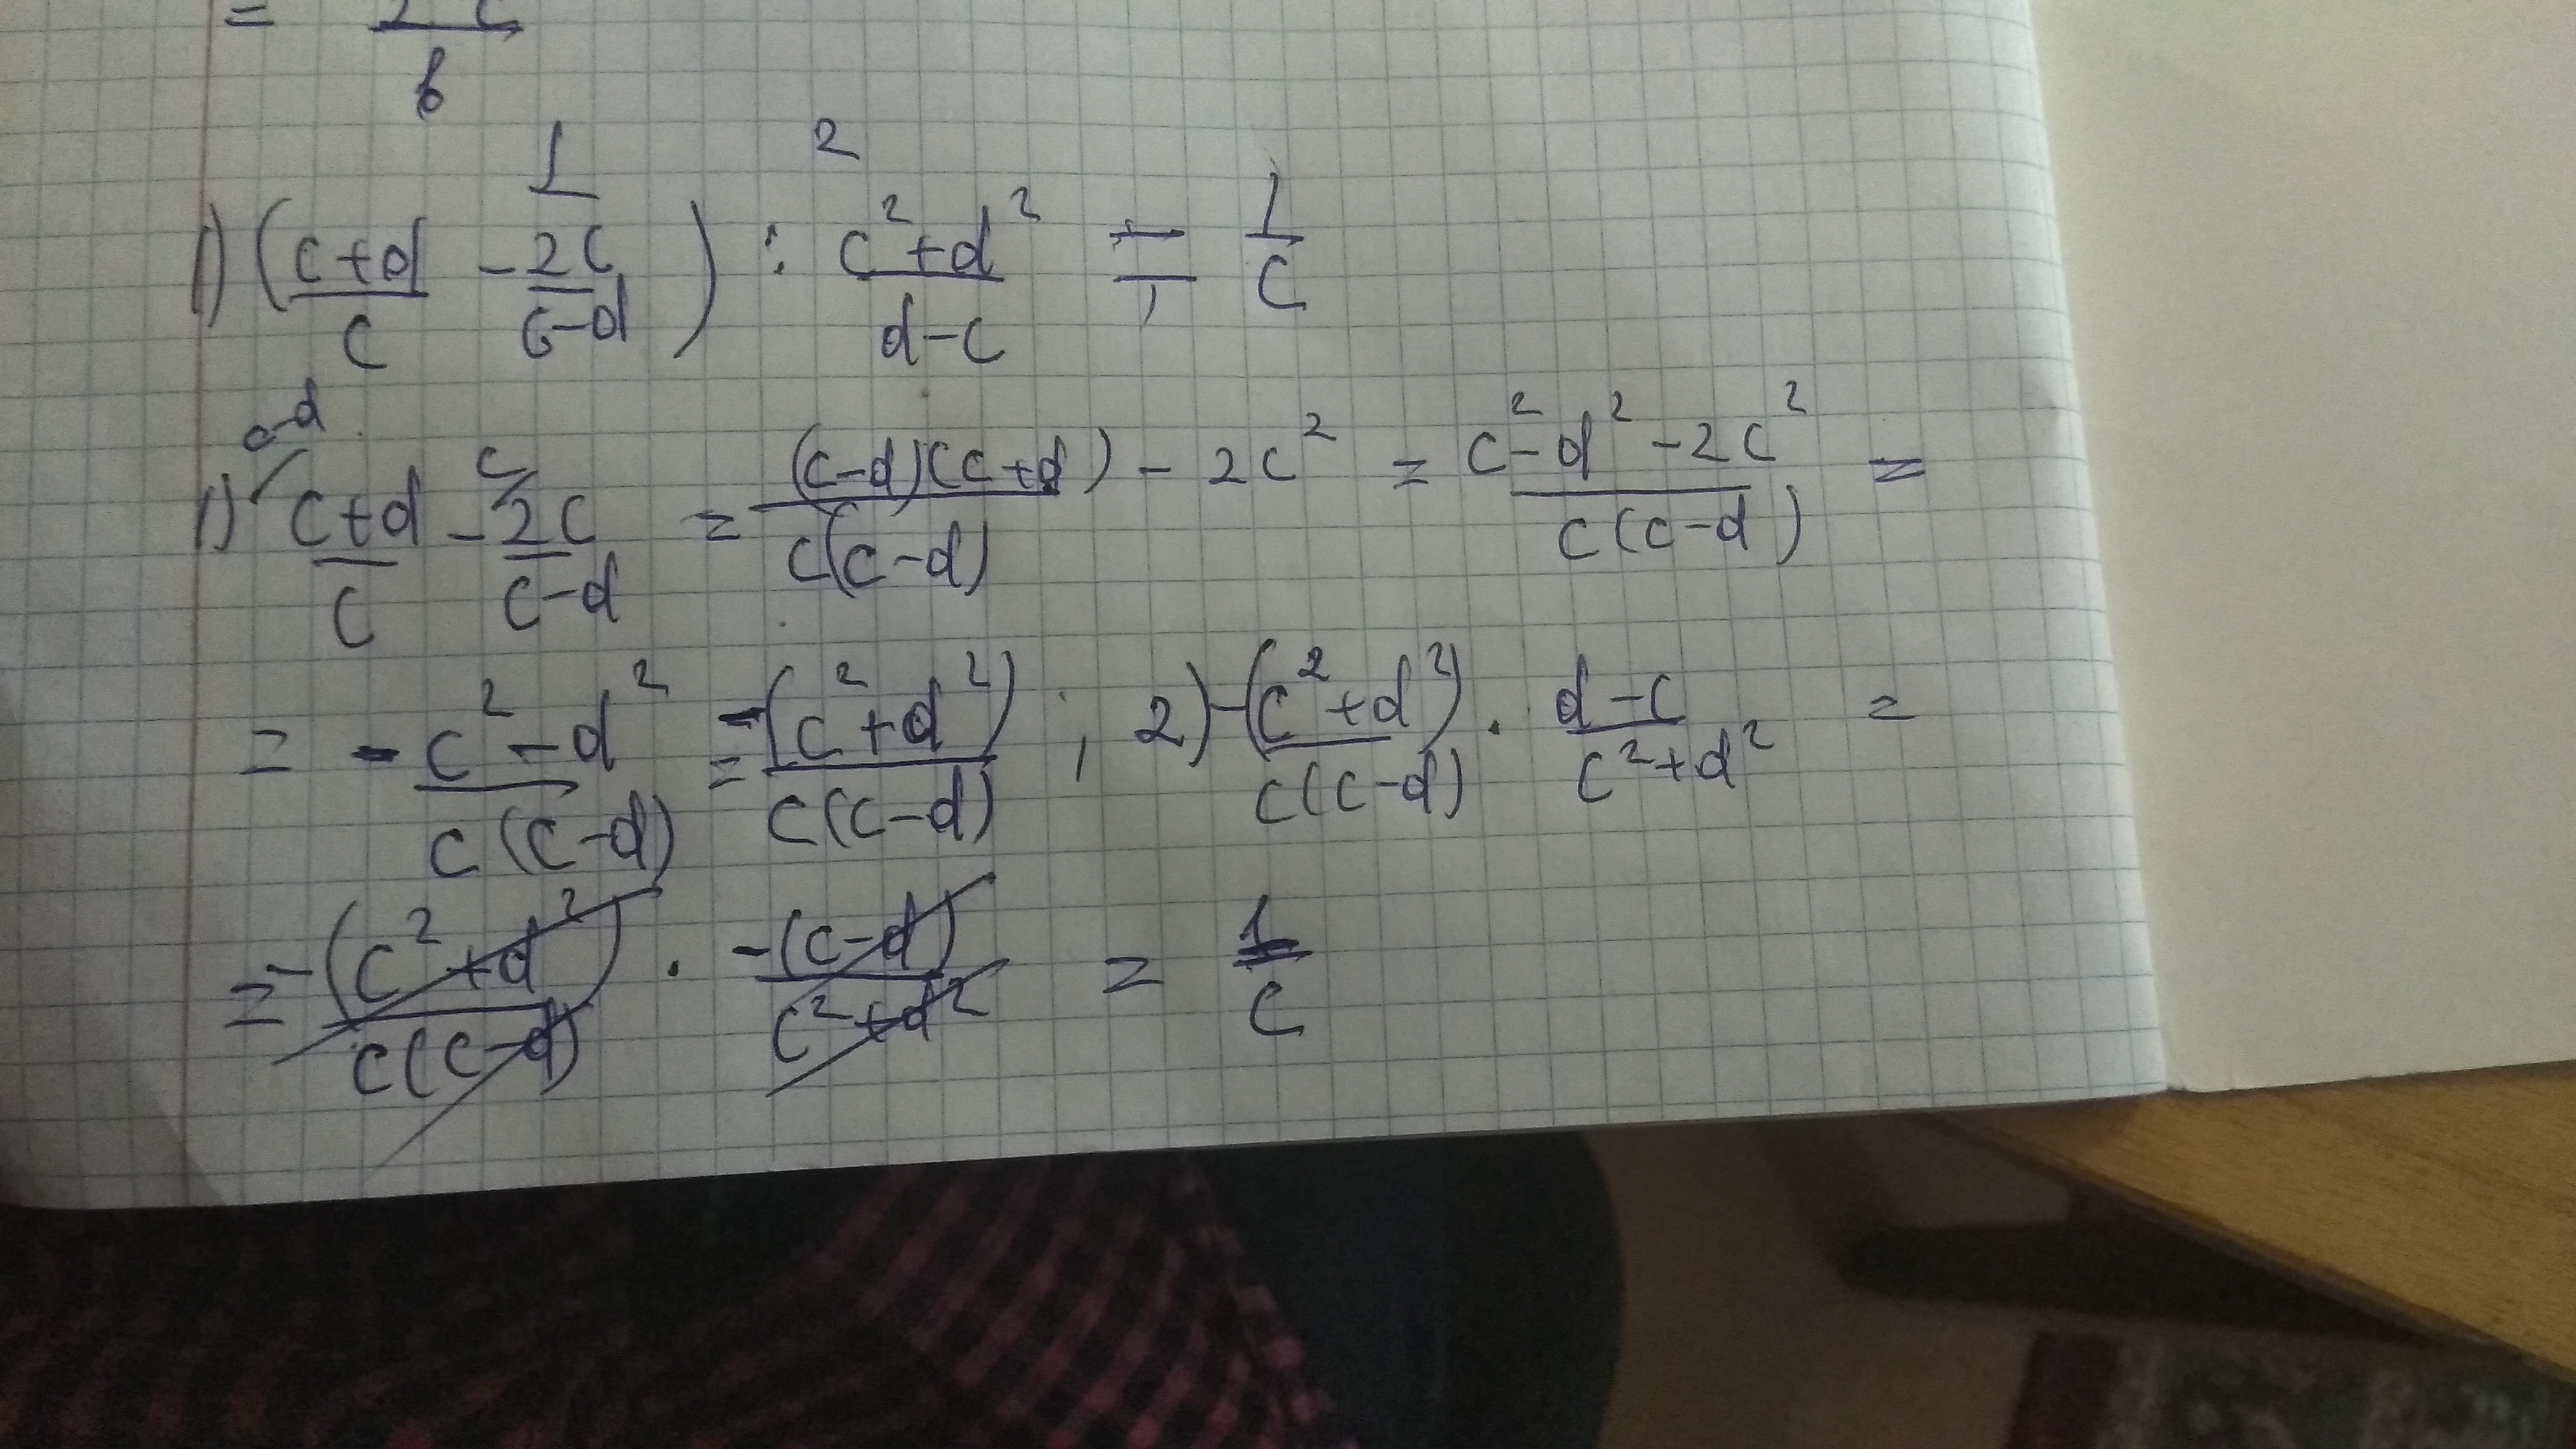 = 2c/b
1 2
1) ((c+d)/c - 2c/(c-d)) : (c²+d²)/(d-c) = 1/c
c-d c
1) (c+d)/c - 2c/(c-d) = ((c-d)(c+d) - 2c²)/(c(c-d)) = (c²-d²-2c²)/(c(c-d)) =
= (-c²-d²)/(c(c-d)) = -(c²+d²)/(c(c-d)) ; 2) -(c²+d²)/(c(c-d)) · (d-c)/(c²+d²) =
= -(c²+d²)/(c(c-d)) · -(c-d)/(c²+d²) = 1/c